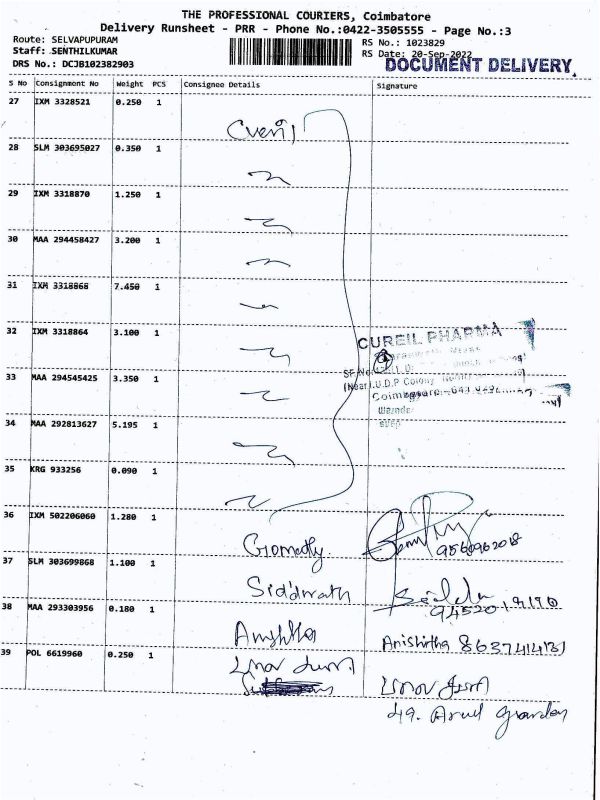 THE PROFESSIONAL COURIERS, Coimbatore
Delivery Runsheet - PRR - Phone No.:0422-3505555 - Page No.:3
Route: SELVAPUPURAM
Staff: SENTHILKUMAR
DRS No.: DCJB102382903
RS No.: 1023829
RS Date: 20-Sep-2022
DOCUMENT DELIVERY
S No Consignment No Weight PCS Consignee Details Signature
27 IXM 3328521 0.250 1
28 SLM 303695027 0.350 1
29 IXM 3318870 1.250 1
30 MAA 294458427 3.200 1
31 IXM 3318868 7.450 1
32 IXM 3318864 3.100 1
CUREIL PHARMA
33 MAA 294545425 3.350 1
34 MAA 292813627 5.195 1
35 KRG 933256 0.090 1
36 IXM 502206060 1.280 1
Gomedly
37 SLM 303699868 1.100 1
Siddharth
38 MAA 293303956 0.180 1
Anishitha 8637414131
39 POL 6619960 0.250 1
49. Arul Garden